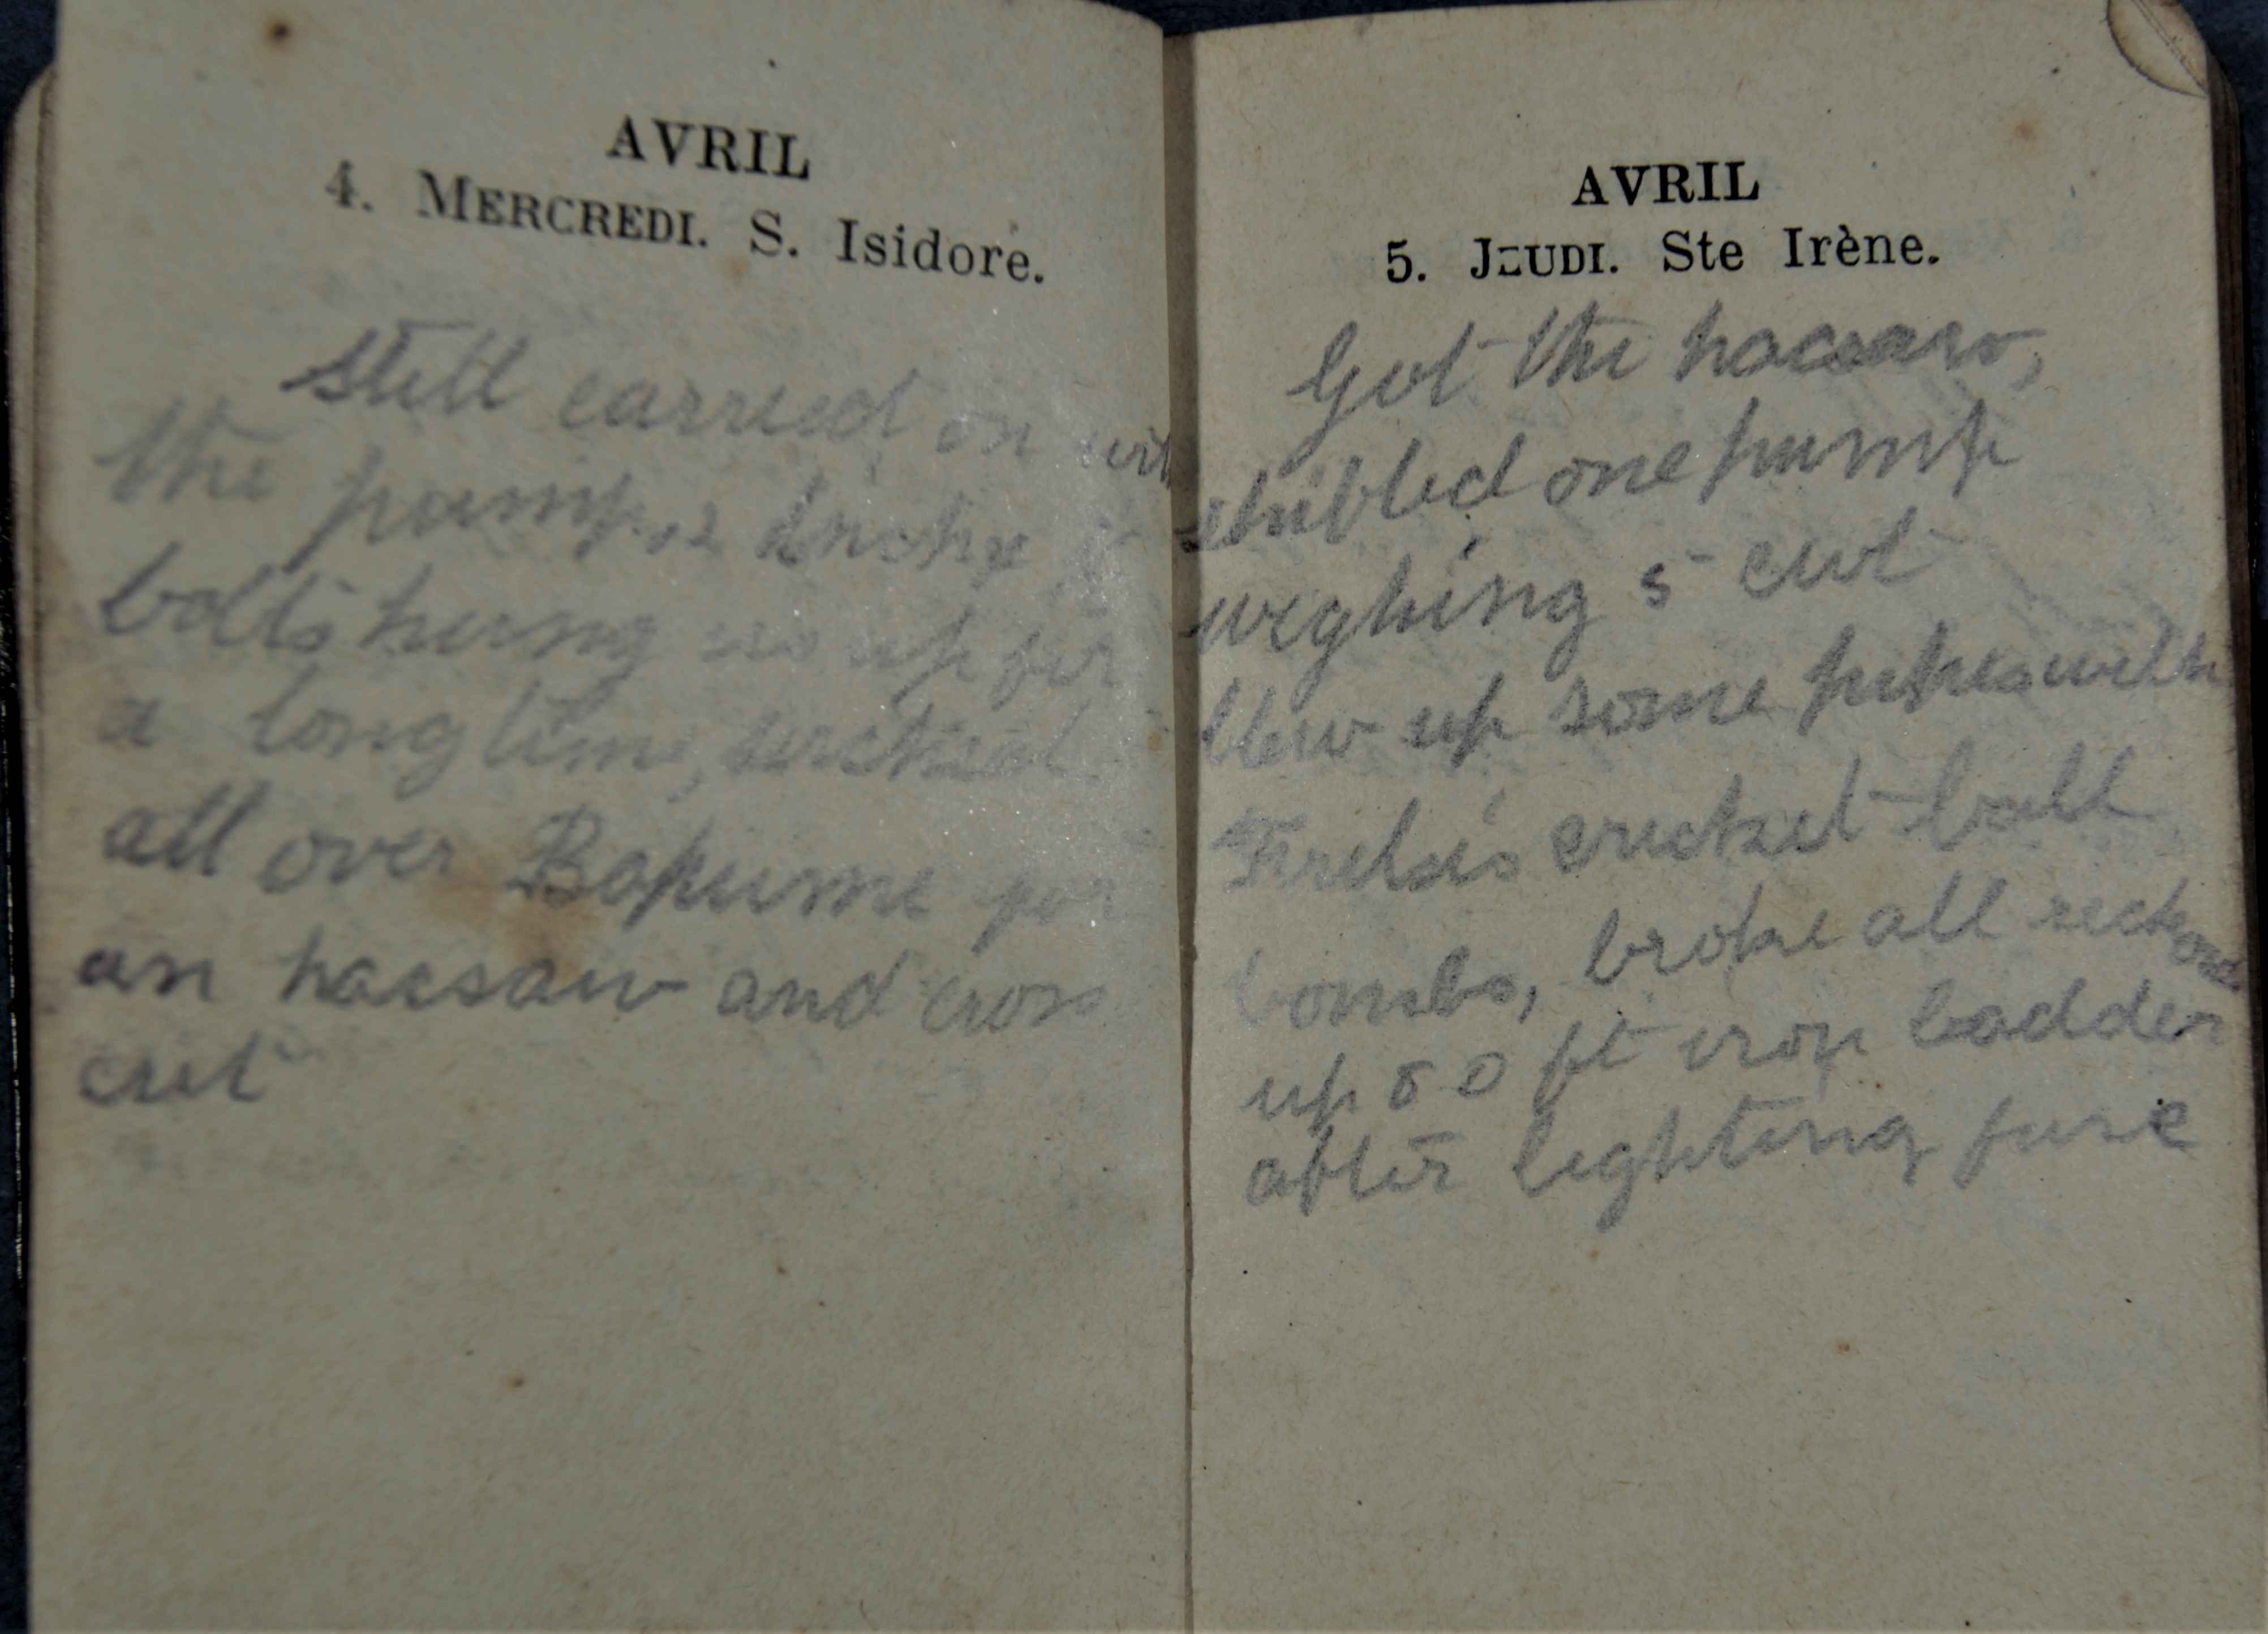 AVRIL
4. MERCREDI. S. Isidore.
Still carried on with
the pump, 2 broke
bolts hung us up for
a long time,
all over Bapume for
an hacsaw and cross
cut
AVRIL
5. JEUDI. Ste Irène.
Got the hacsaw,
one pump
weghing 5 cwt
blew up some pipes with
cricket ball
bombs, broke all reckords
up 80 ft iron ladder
after lighting fuse